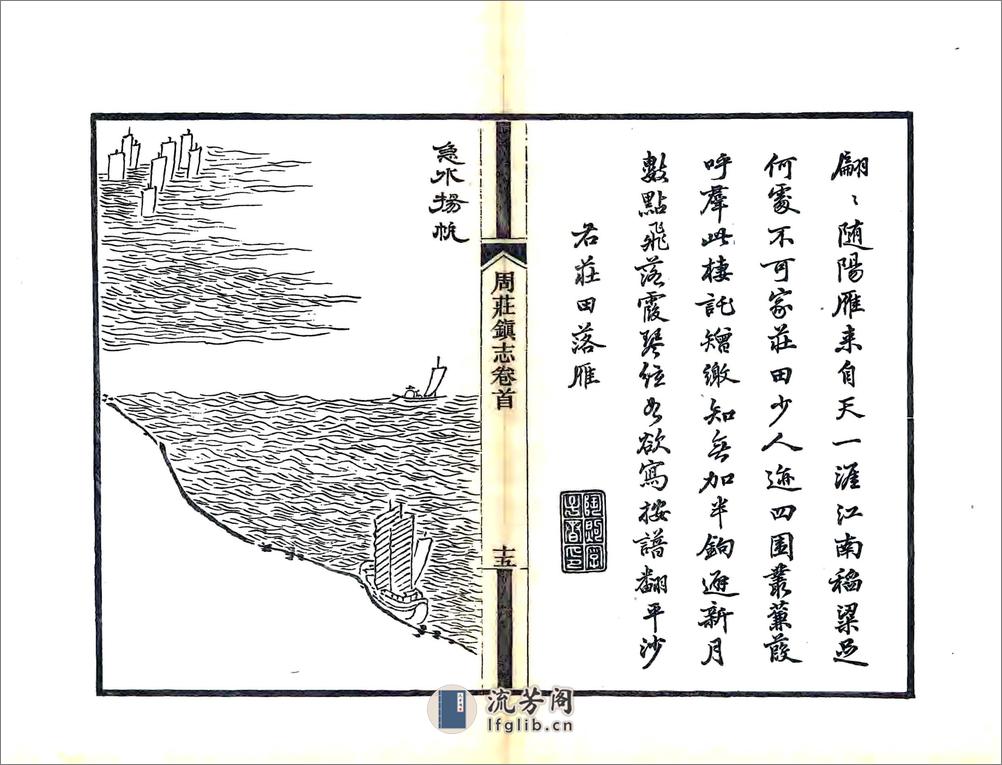 翩〻随陽雁来自天一涯江南稻粱足
何處不可家莊田少人迹四圍叢蒹葭
呼羣此棲託矰繳知無加半鉤避新月
數點飛落霞琴絃如欲寫按譜翻平沙
右莊田落雁
周莊鎮志卷首
十五
急水揚帆
流芳阁
lfglib.cn